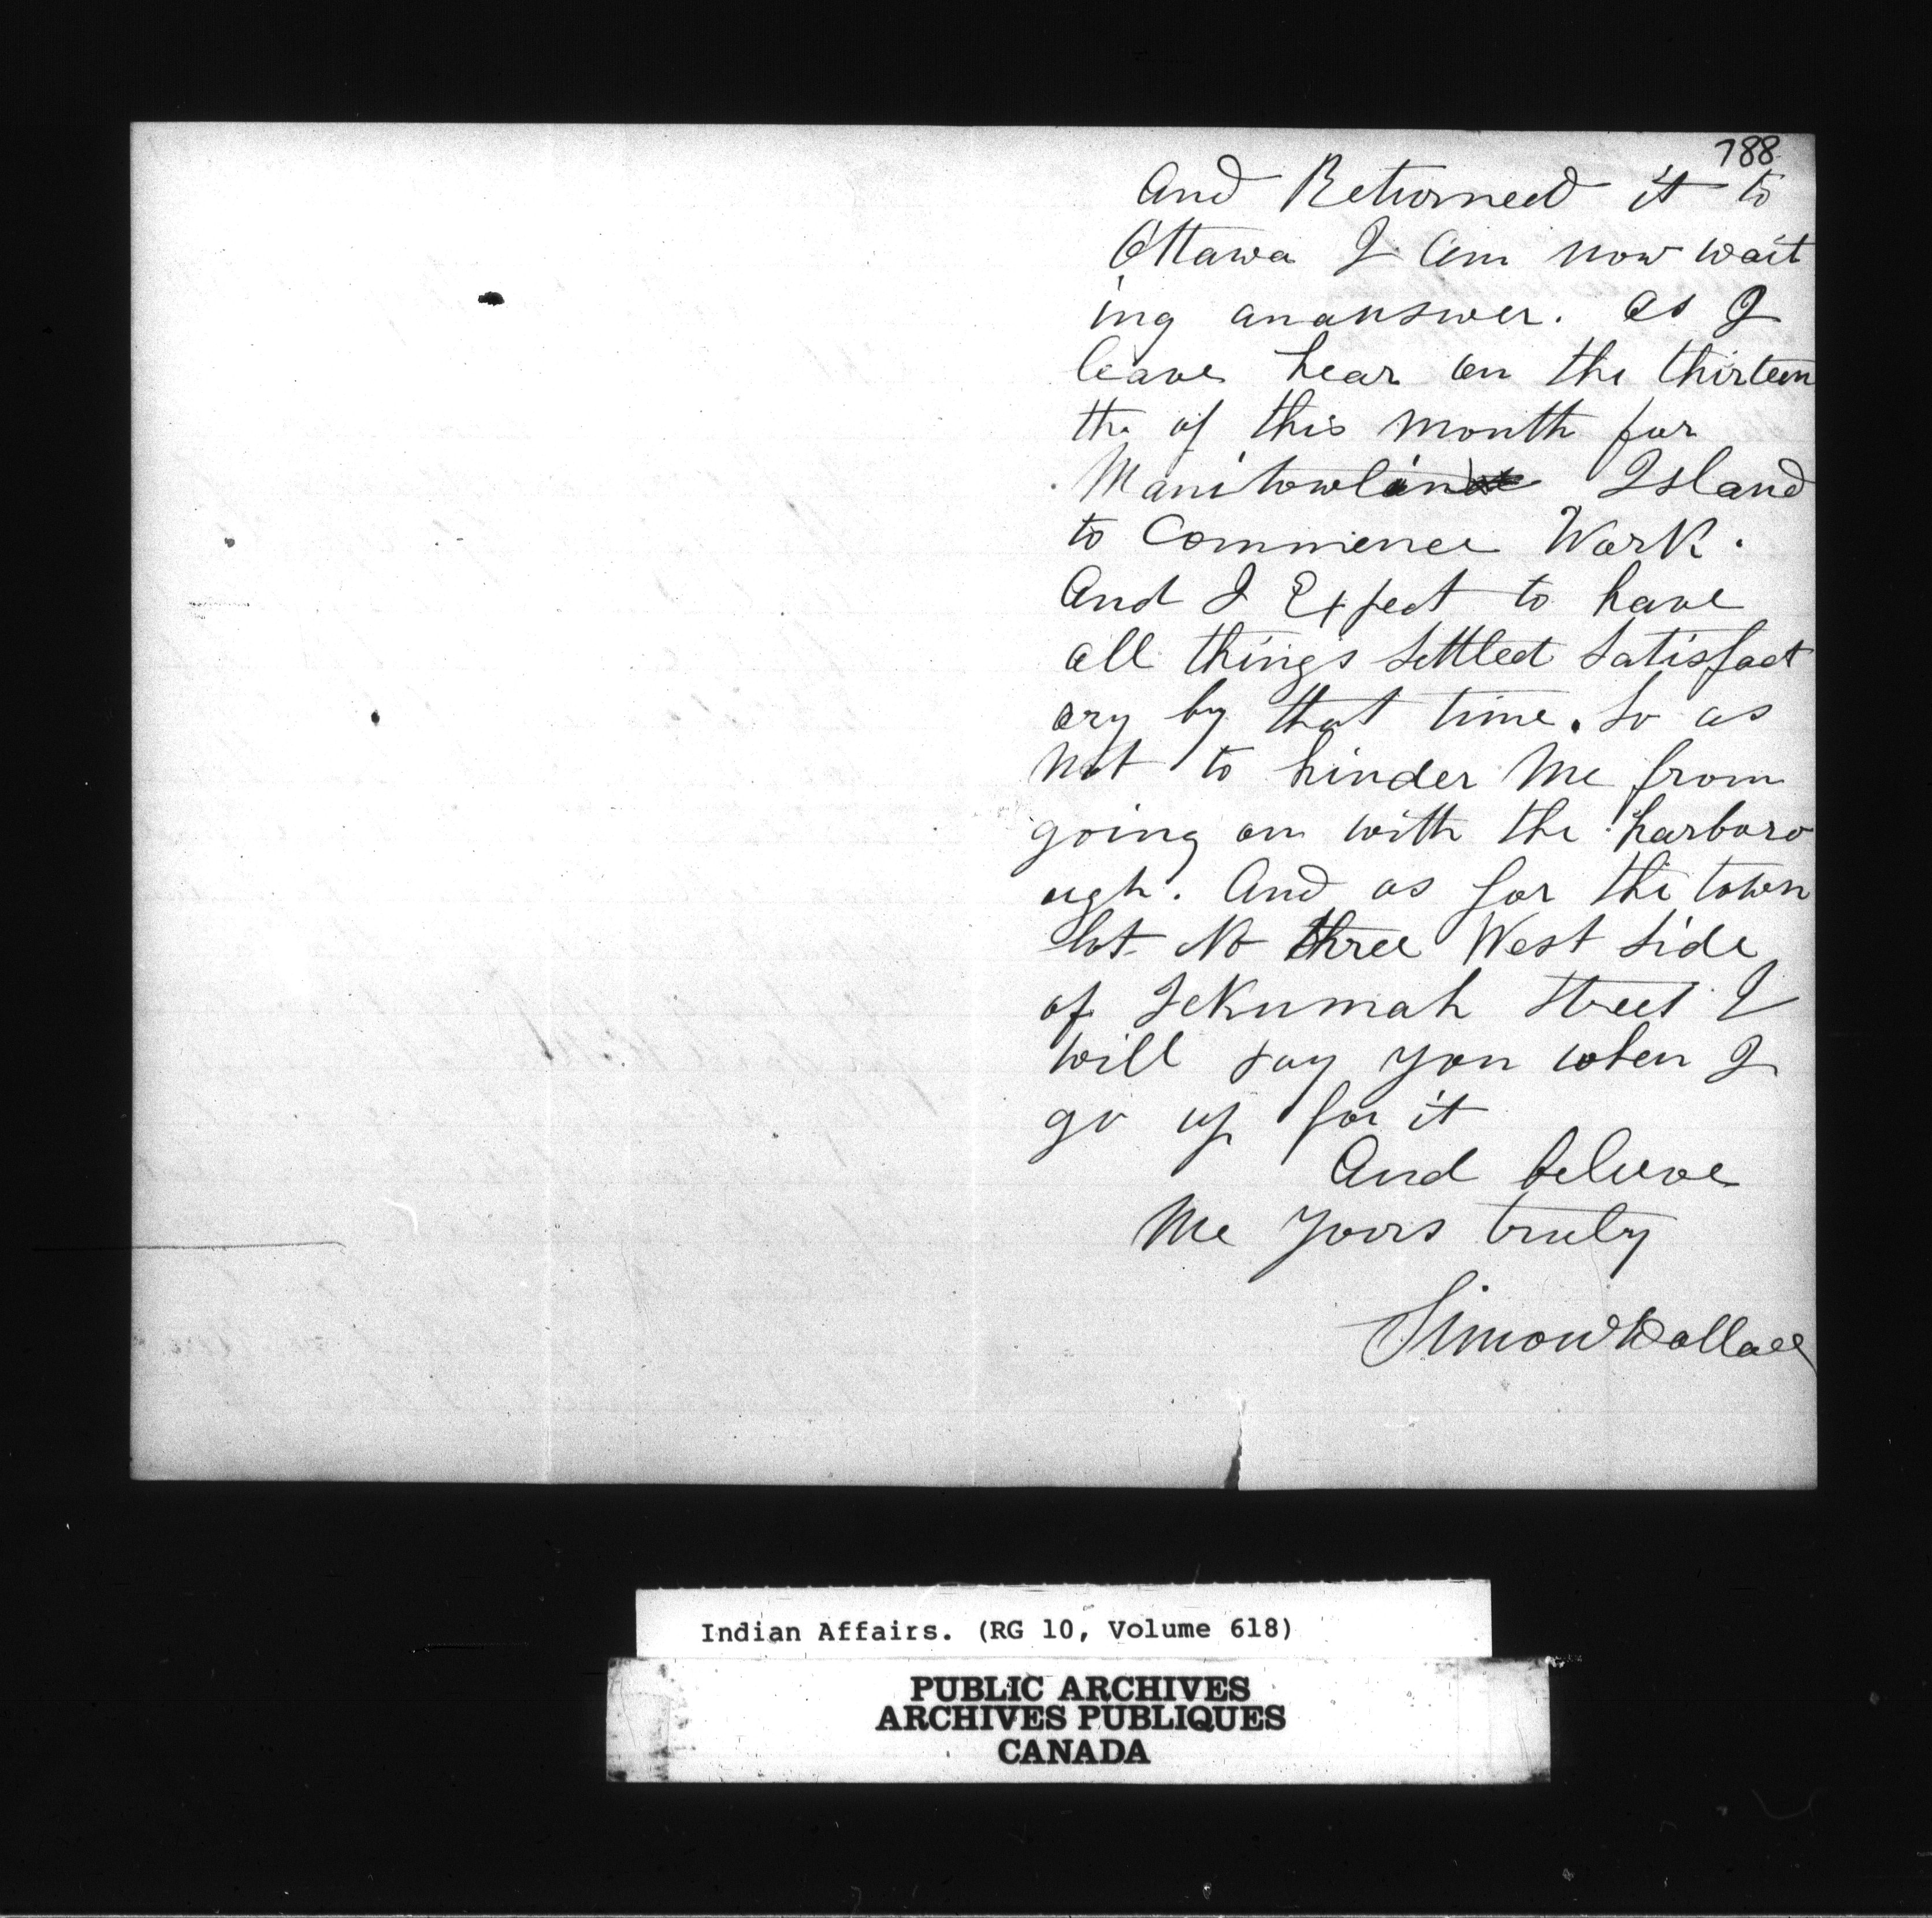 788
And Returned it to
Ottawa I Am now wait
ing ananswer. As I
leave hear on the thirteen
the of this month for
Manitowlin Island
to Commence Work.
And I Expect to have
all things settled satisfact
ory by that time. So as
Not to hinder Me from
going on with the harboro
ugh. And as for the town
lot No three West side
of Tekumah Street I
will say you when I
go up for it
And beleeve
Me Yours truly
Simon Wallace
Indian Affairs. (RG 10, Volume 618)
PUBLIC ARCHIVES
ARCHIVES PUBLIQUES
CANADA